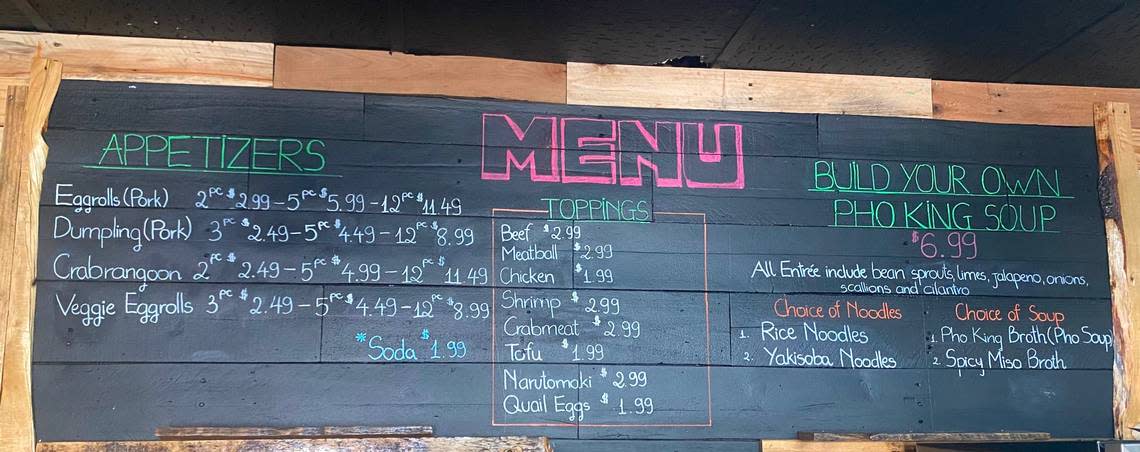 MENU
APPETIZERS
Eggrolls (Pork) 2pc $2.99 – 5pc $5.99 – 12pc $11.49
Dumpling (Pork) 3pc $2.49 – 5pc $4.49 – 12pc $8.99
Crabrangoon 2pc $2.49 – 5pc $4.99 – 12pc $11.49
Veggie Eggrolls 3pc $2.49 – 5pc $4.49 – 12pc $8.99
*Soda $1.99
TOPPINGS
Beef $2.99
Meatball $2.99
Chicken $1.99
Shrimp $2.99
Crabmeat $2.99
Tofu $1.99
Narutomaki $2.99
Quail Eggs $1.99
BUILD YOUR OWN
PHO KING SOUP
$6.99
All Entrée include bean sprouts, limes, jalapeno, onions,
scallions and cilantro
Choice of Noodles
1. Rice Noodles
2. Yakisoba Noodles
Choice of Soup
1. Pho King Broth (Pho Soup)
2. Spicy Miso Broth